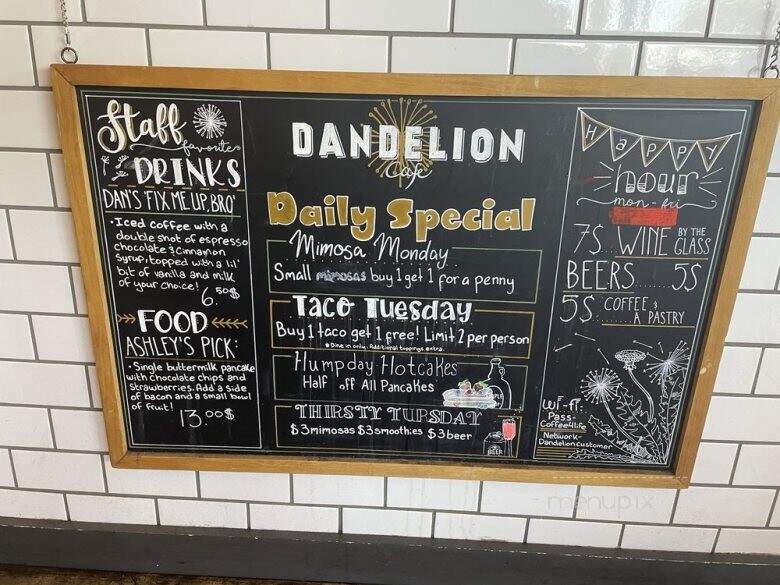 Staff
favorite
DRINKS
DAN'S FIX ME UP, BRO'
·Iced coffee with a
double shot of espresso
chocolate & Cinnamon
Syrup, topped with a lil'
bit of vanilla and milk
of your choice!
6.50$
FOOD
ASHLEY'S PICK:
·Single buttermilk pancake
with chocolate chips and
strawberries. Add a side
of bacon and a small bowl
of fruit!
13.00$
DANDELION
Cafe
Daily Special
Mimosa Monday
Small mimosas buy 1 get 1 for a penny
Taco Tuesday
Buy 1 taco get 1 free! Limit 2 per person
*Dine in only. Additional toppings extra.
Humpday Hotcakes
Half off All Pancakes
THIRSTY TURSDAY
$3 mimosas $3 smoothies $3 beer
BEER
HAPPY
hour
mon-fri
7$ WINE BY THE GLASS
BEERS 5$
5$ COFFEE & A PASTRY
Wi-fi:
Pass-
Coffee4life
Network-
Dandelion customer
menupix